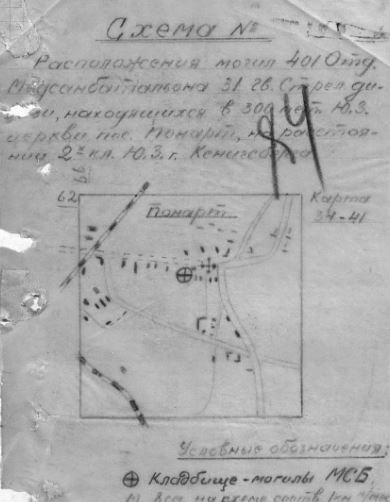 Схема №
Расположения могил 401 Отд.
Медсанбатальона 31 гв. Стрел. ди-
зии, находящихся в 300 мет. Ю.З.
церкви пос. Понарт, на расстоя-
нии 2х кл. Ю.З. г. Кенигсберга
84
66
62
Понарт
Карта
34-41
Условные обозначения:
Кладбище-могилы МСБ,
на схеме соотв. 1км